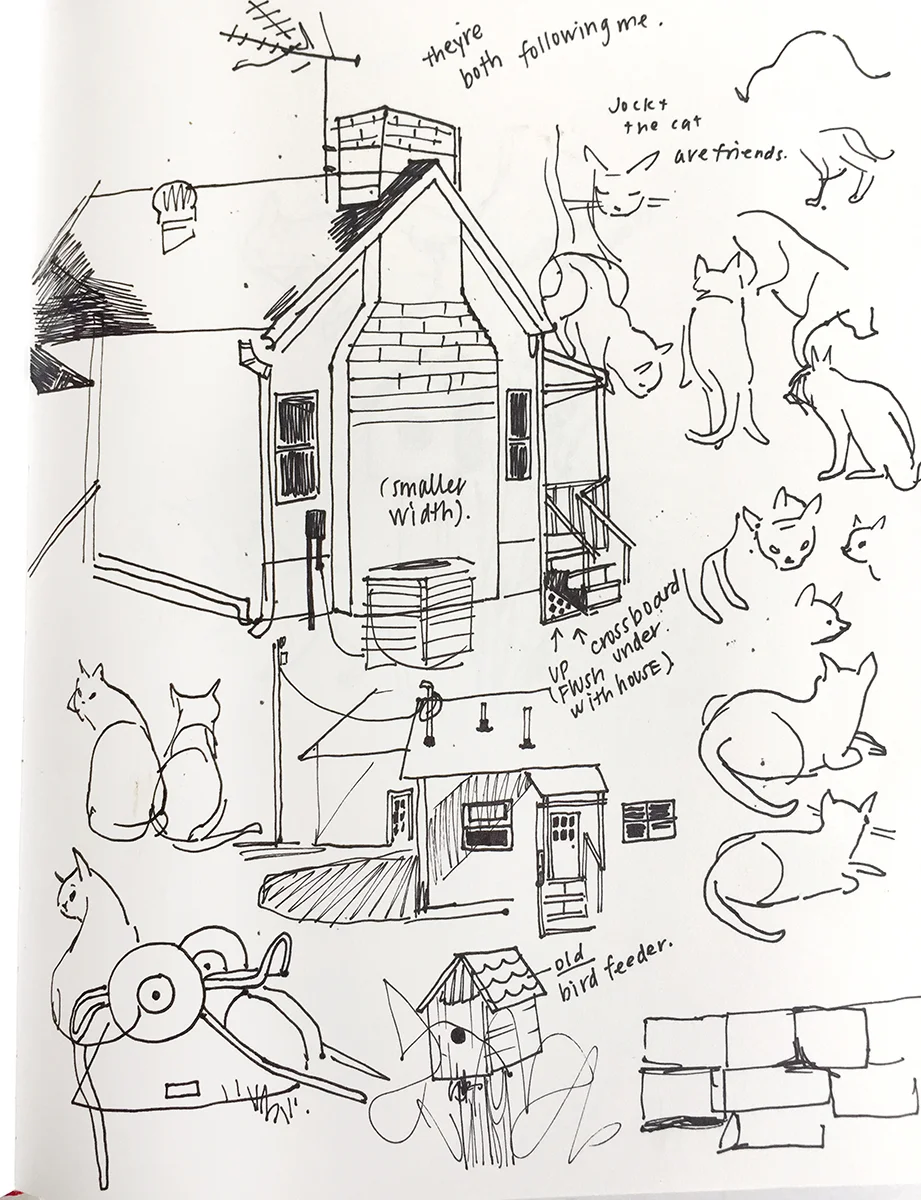 theyre
both following me.
Jock +
the cat
are friends.
(smaller
width).
crossboard
under
UP
(Flush
with house)
old
bird feeder.